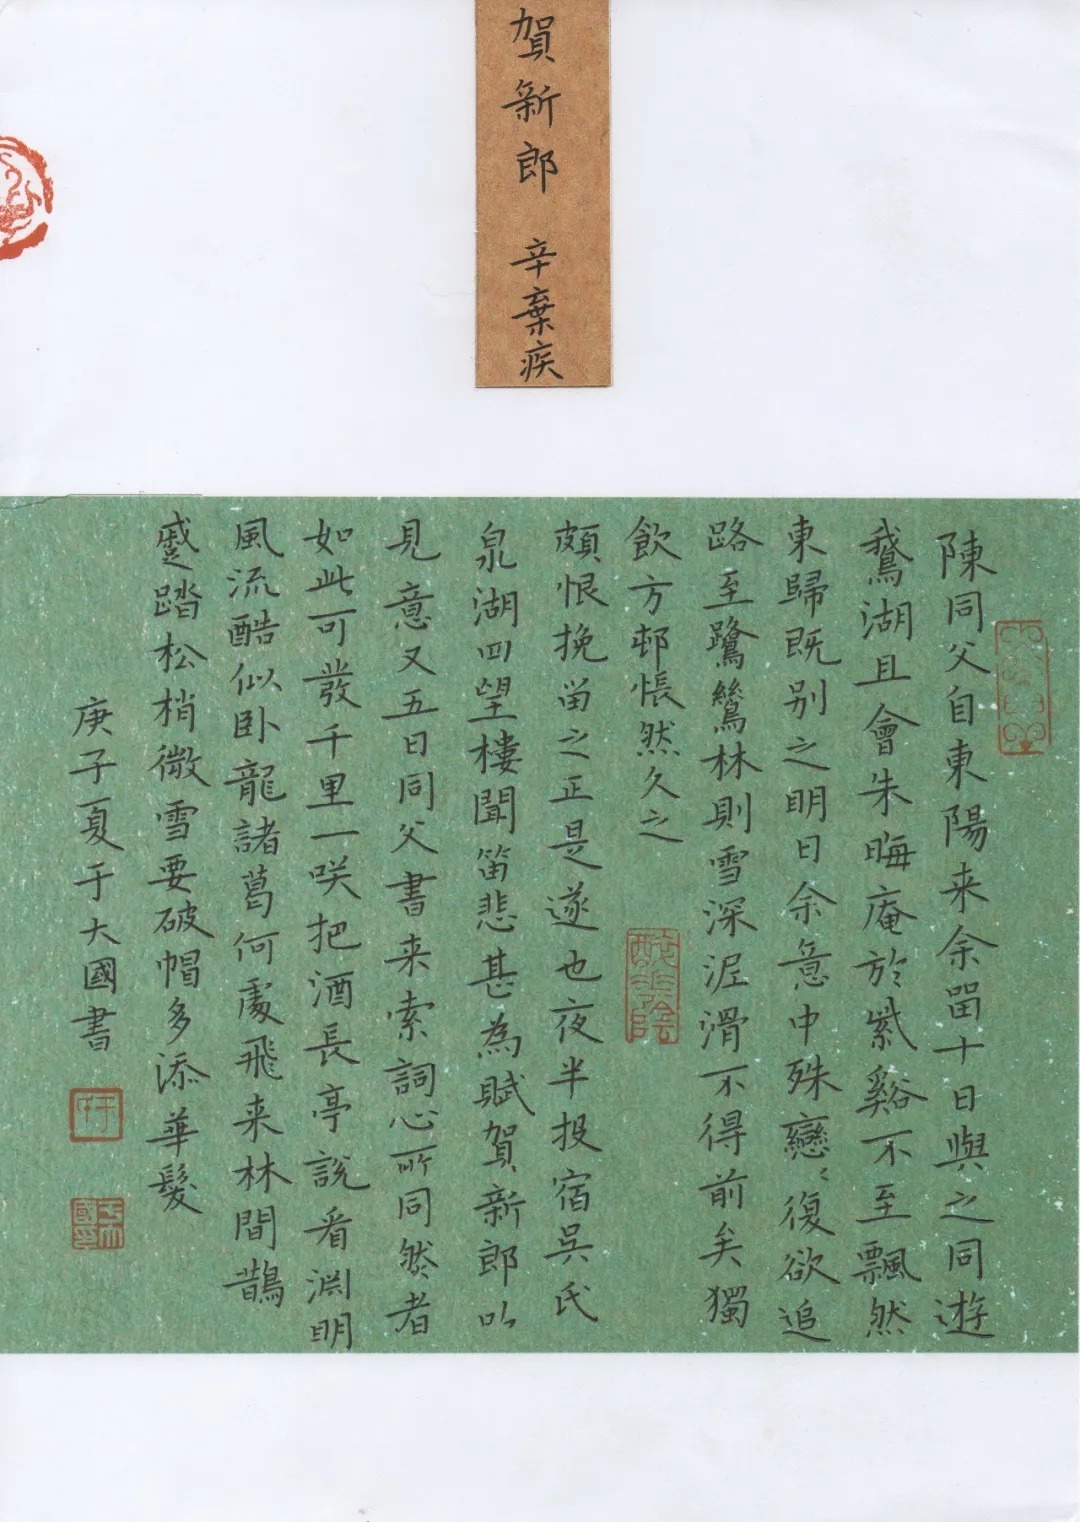 賀新郎 辛棄疾
陳同父自東陽来余留十日與之同遊
鵞湖且會朱晦庵於紫谿不至飄然
東歸既別之明日余意中殊戀〻復欲追
路至鷺鷥林則雪深泥滑不得前矣獨
飲方邨悵然久之
頗恨挽留之正是遂也夜半投宿吳氏
泉湖四望樓聞笛悲甚為賦賀新郎以
見意又五日同父書来索詞心所同然者
如此可發千里一咲把酒長亭說看淵明
風流酷似卧龍諸葛何處飛来林間鵲
蹙踏松梢微雪要破帽多添華髮
庚子夏于大國書